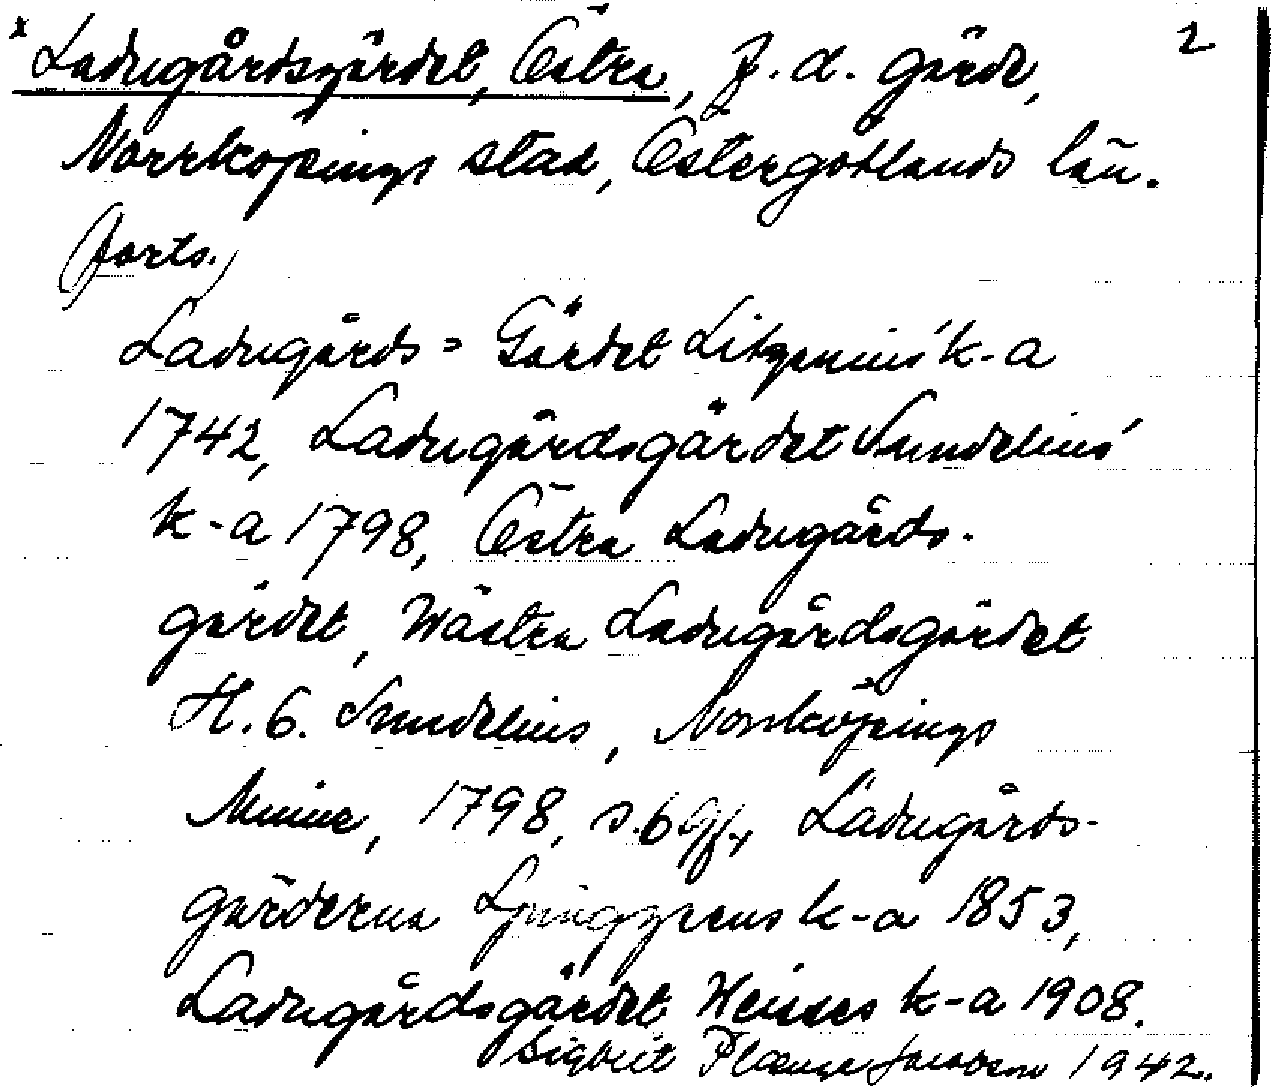 x Ladugårdsgärdet, Östra, f.d. gärde, 2
Norrköpings stad, Östergötlands län.
(forts.)
Ladugårds= Gärdet Litzenius' k-a
1742, Ladugårdsgärdet Sundelius'
k-a 1798, Östra Ladugårds-
gärdet, Wästra Ladugårdsgärdet
H. G. Sundelius, Norrköpings
Minne, 1798, s. 69 f., Ladugårds-
gärderna Ljunggrens k-a 1853,
Ladugårdsgärdet Heines k-a 1908.
Sigbrit Plænge Jacobson 1942.